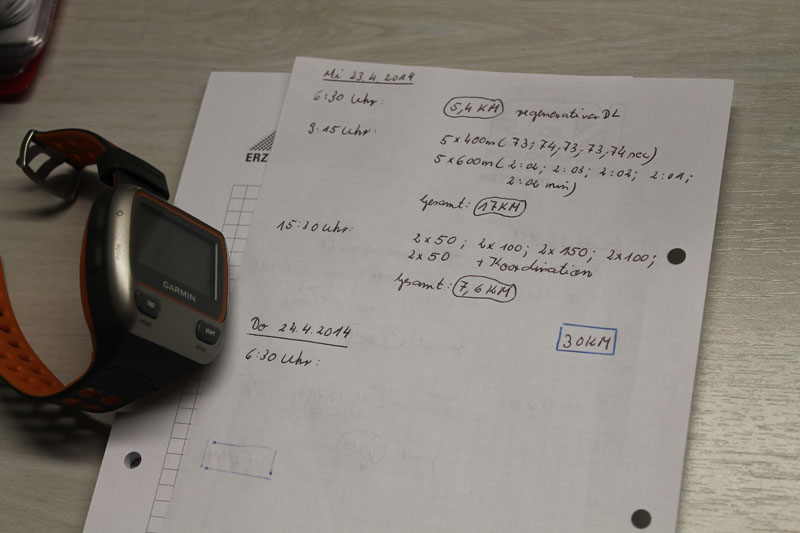 Mi 23.4.2014
6:30 Uhr: 5,4 KM regenerativer DL
9:15 Uhr: 5x400m (73; 74, 73, 73, 74 sec)
5x600m (2:02; 2:03; 2:02; 2:01;
2:02 min)
Gesamt: 17KM
15:30 Uhr: 2x50; 2x100; 2x150; 2x100;
2x50 + Koordination
Gesamt: 7,6 KM
30KM
Do 24.4.2014
6:30 Uhr:
ERZ
GARMIN
mode
lap
reset
start
stop